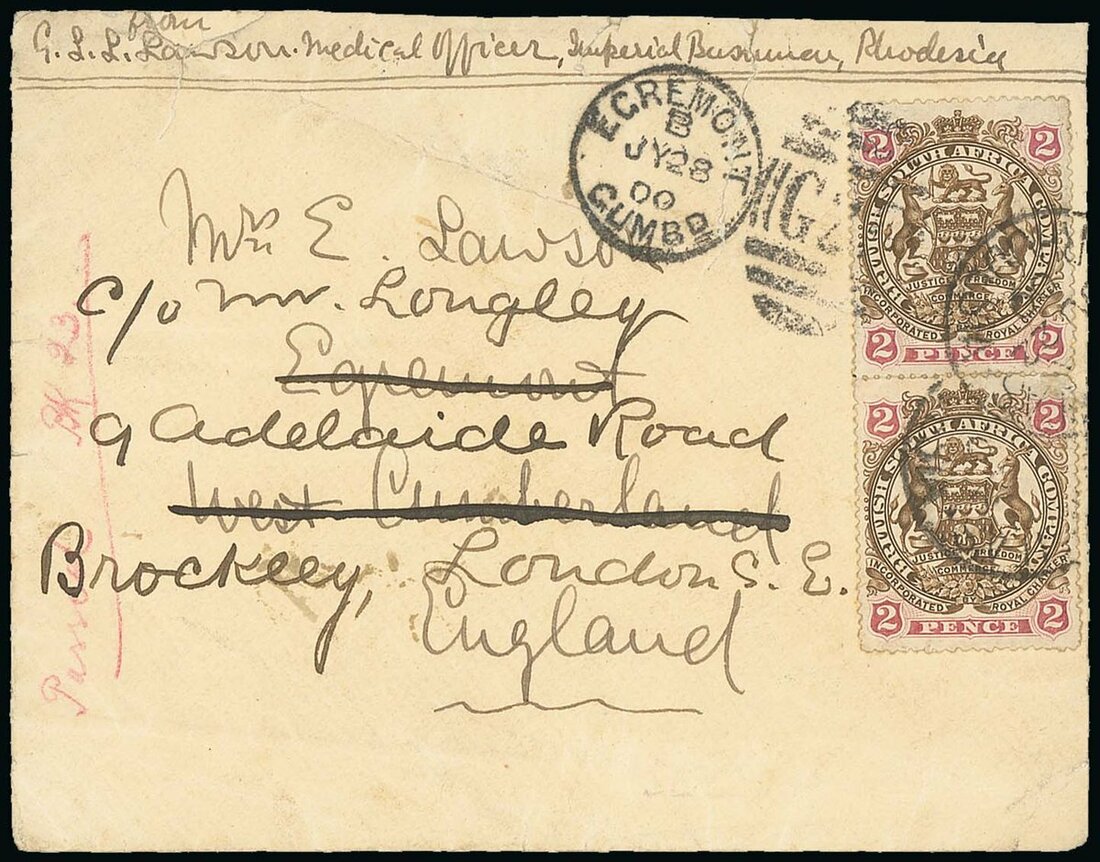 from
G. L. L. Lawson. Medical Officer, Imperial Bushman, Rhodesia
EGREMONT
B
JY 28
00
CUMBD
G
Mrs E. Lawson
c/o Mr. Longley
Egremont
9 Adelaide Road
West Cumberland
Brockley, London S. E.
England
BK 23
2 2
BRITISH SOUTH AFRICA COMPANY
JUSTICE FREEDOM
COMMERCE
INCORPORATED BY ROYAL CHARTER
2 PENCE 2
2 2
BRITISH SOUTH AFRICA COMPANY
JUSTICE FREEDOM
COMMERCE
INCORPORATED BY ROYAL CHARTER
2 PENCE 2